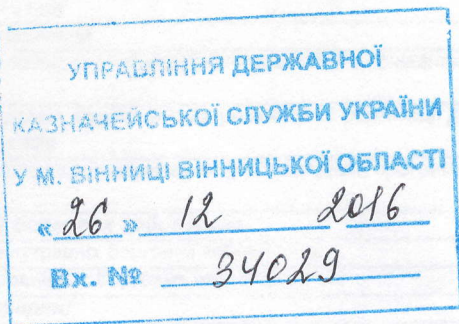 УПРАВЛІННЯ ДЕРЖАВНОЇ
КАЗНАЧЕЙСЬКОЇ СЛУЖБИ УКРАЇНИ
У М. ВІННИЦІ ВІННИЦЬКОЇ ОБЛАСТІ
«26» 12 2016
Вх. № 34029